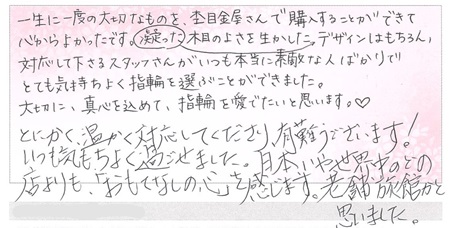 一生に一度の大切なものを、杢目金屋さんで購入することができて
心からよかったです。凝った木目のよさを生かした、デザインはもちろん、
対応して下さるスタッフさんがいつも本当に素敵な人ばかりで
とても気持ちよく指輪を選ぶことができました。
大切に、真心を込めて、指輪を愛でたいと思います。♡
とにかく、温かく対応してくださり、有難うございます!
いつも気もちよく過ごせました。日本、いや世界中のどの
店よりも、「おもてなしの心」を感じます。老舗旅館かと
思いました。